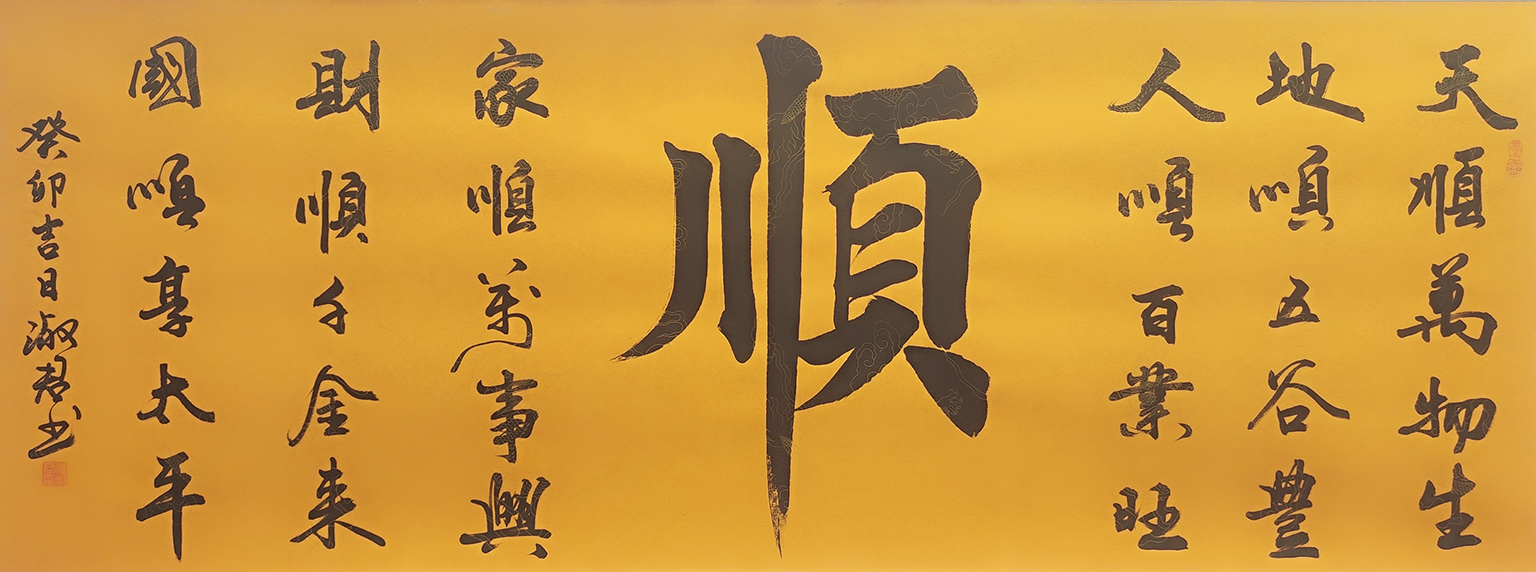 天順萬物生
地順五谷豐
人順百業旺
順
家順萬事興
財順千金来
國順享太平
癸卯吉日淑君书